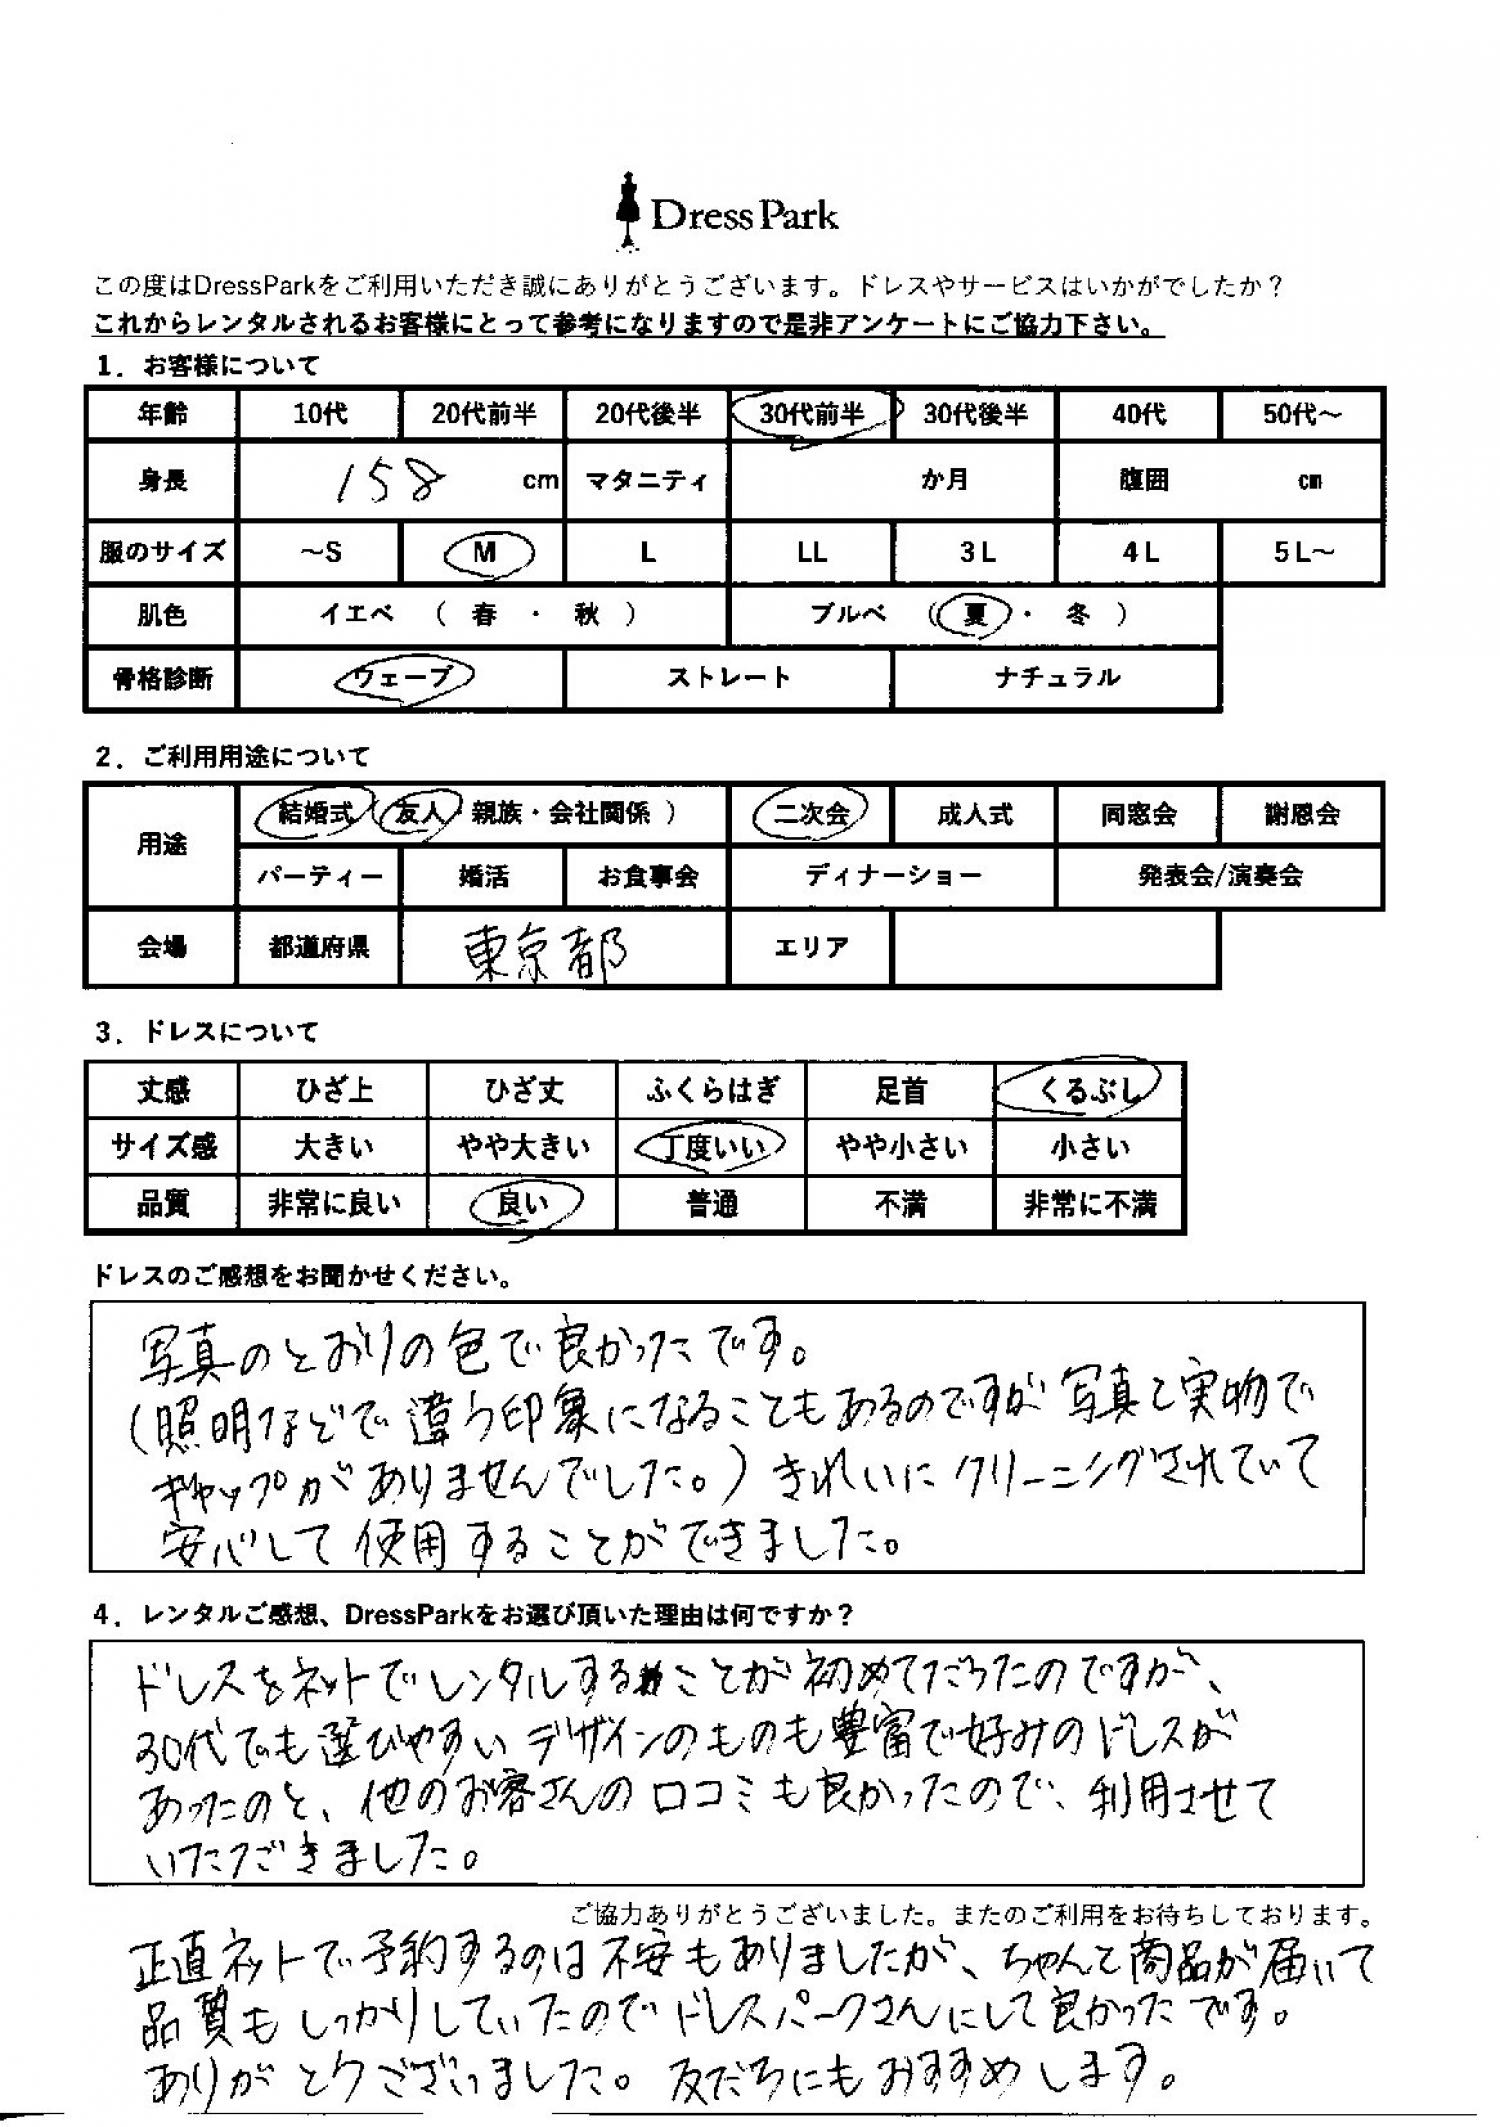 Dress Park
この度はDressParkをご利用いただき誠にありがとうございます。ドレスやサービスはいかがでしたか？
これからレンタルされるお客様にとって参考になりますので是非アンケートにご協力下さい。
1．お客様について
年齢 10代 20代前半 20代後半 30代前半 30代後半 40代 50代～
身長 158 cm マタニティ か月 腹囲 cm
服のサイズ ～S M L LL 3L 4L 5L～
肌色 イエベ （ 春 ・ 秋 ） ブルベ （ 夏 ・ 冬 ）
骨格診断 ウェーブ ストレート ナチュラル
2．ご利用用途について
用途 結婚式（友人・親族・会社関係 ） 二次会 成人式 同窓会 謝恩会
パーティー 婚活 お食事会 ディナーショー 発表会/演奏会
会場 都道府県 東京都 エリア
3．ドレスについて
丈感 ひざ上 ひざ丈 ふくらはぎ 足首 くるぶし
サイズ感 大きい やや大きい 丁度いい やや小さい 小さい
品質 非常に良い 良い 普通 不満 非常に不満
ドレスのご感想をお聞かせください。
写真のとおりの色で良かったです。
(照明などで違う印象になることもあるのですが写真と実物で
ギャップがありませんでした。)きれいにクリーニングされていて
安心して使用することができました。
4．レンタルご感想、DressParkをお選び頂いた理由は何ですか？
ドレスをネットでレンタルすることが初めてだったのですが、
30代でも選びやすいデザインのものも豊富で好みのドレスが
あったのと、他のお客さんの口コミも良かったので、利用させて
いただきました。
ご協力ありがとうございました。またのご利用をお待ちしております。
正直ネットで予約するのは不安もありましたが、ちゃんと商品が届いて
品質もしっかりしていたのでドレスパークさんにして良かったです。
ありがとうございました。友だちにもおすすめします。